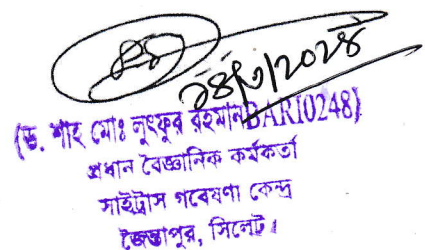 ২৪/৩/2024
(ড. শাহ মোঃ লুৎফুর রহমানBARI0248)
প্রধান বৈজ্ঞানিক কর্মকর্তা
সাইট্রাস গবেষণা কেন্দ্র
জৈন্তাপুর, সিলেট।